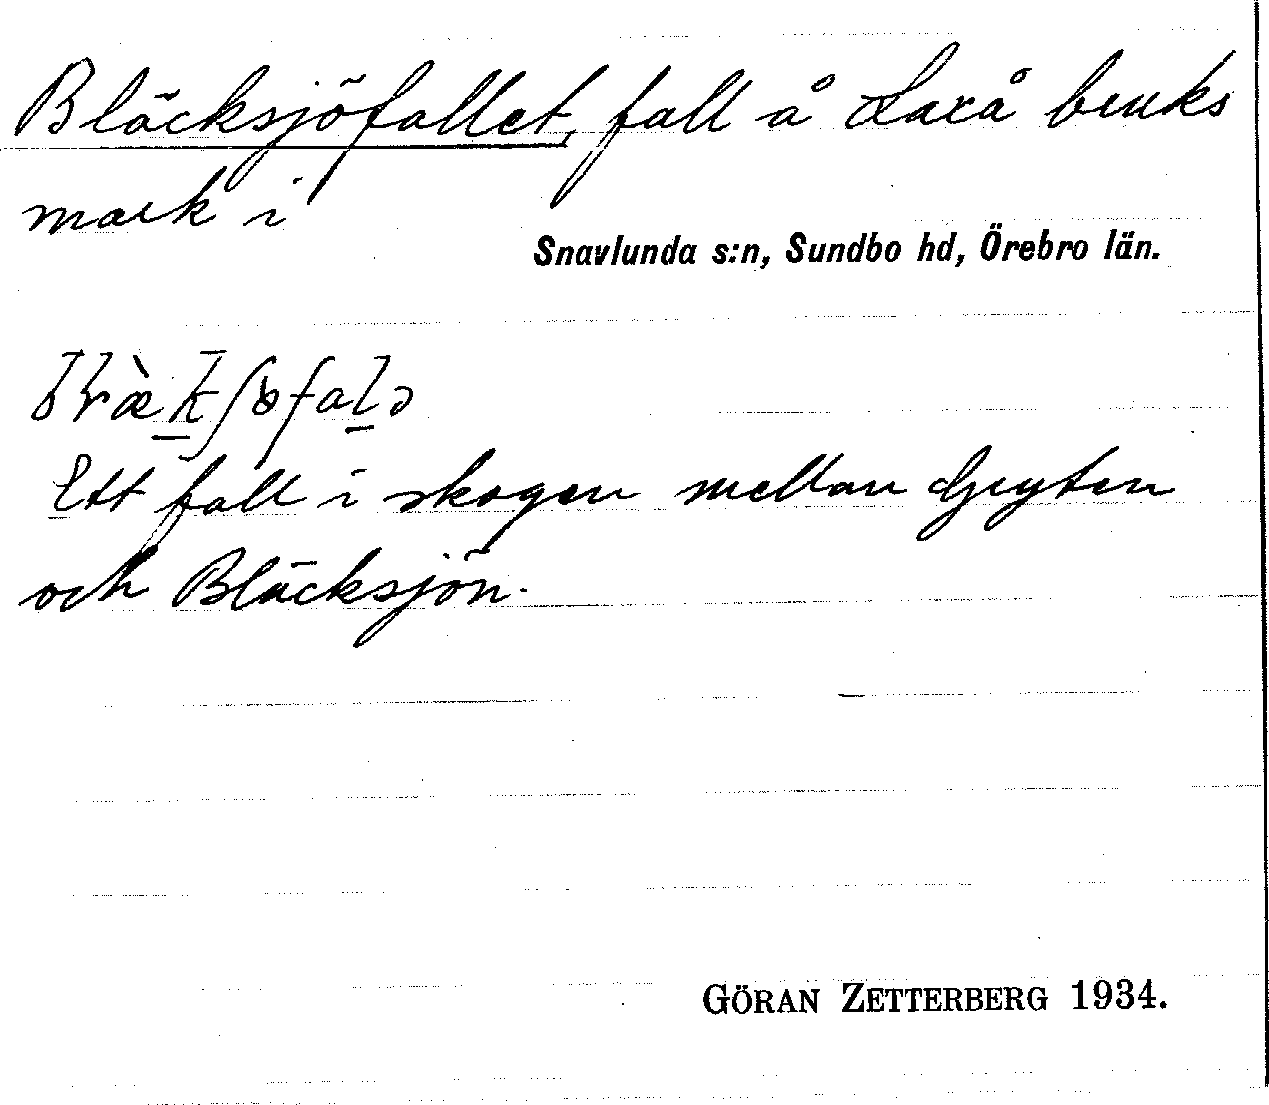 Bläcksjöfallet, fall å Laxå bruks
mark i
Snavlunda s:n, Sundbo hd, Örebro län.
Ett fall i skogen mellan Gryten
och Bläcksjön.
GÖRAN ZETTERBERG 1934.